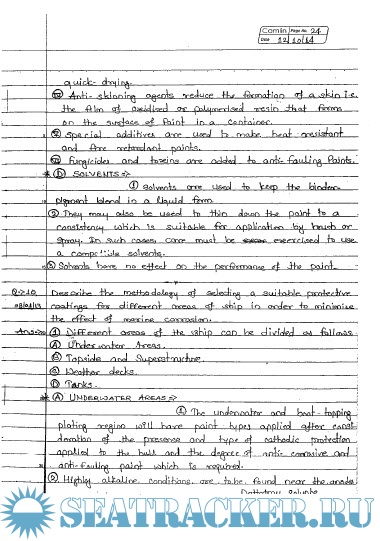 Camlin Page No. 24
Date 12/10/14
quick-drying.
Anti-skinning agents reduce the formation of a skin i.e.
the film of oxidised or polymerised resin that forms
on the surface of Paint in a container.
Special additives are used to make heat-resistant
and fire retardant paints.
Fungicides and toxins are added to anti-fouling Paints.
* (D) SOLVENTS ⇒
① Solvents are used to keep the binder-
pigment blend in a liquid form
② They may also be used to thin down the paint to a
consistency which is suitable for application by brush or
spray. In such cases care must be exercised to use
a compatible solvents.
③ Solvents have no effect on the performance of the paint
Q→10. Describe the methodology of selecting a suitable protective
coatings for different areas of ship in order to minimise
the effect of marine corrosion.
Ans:→ ① Different areas of the ship can be divided as follows
(A) Underwater Areas.
(B) Topside and Superstructure.
(C) Weather decks.
(D) Tanks.
* (A) UNDERWATER AREAS ⇒
① The underwater and boot-topping
plating region will have paint types applied after consi-
deration of the presence and type of cathodic protection
applied to the hull and the degree of anti-corrosive and
anti-fouling paint which is required.
② Highly alkaline conditions are to be found near the anode
SEATRACKER.RU